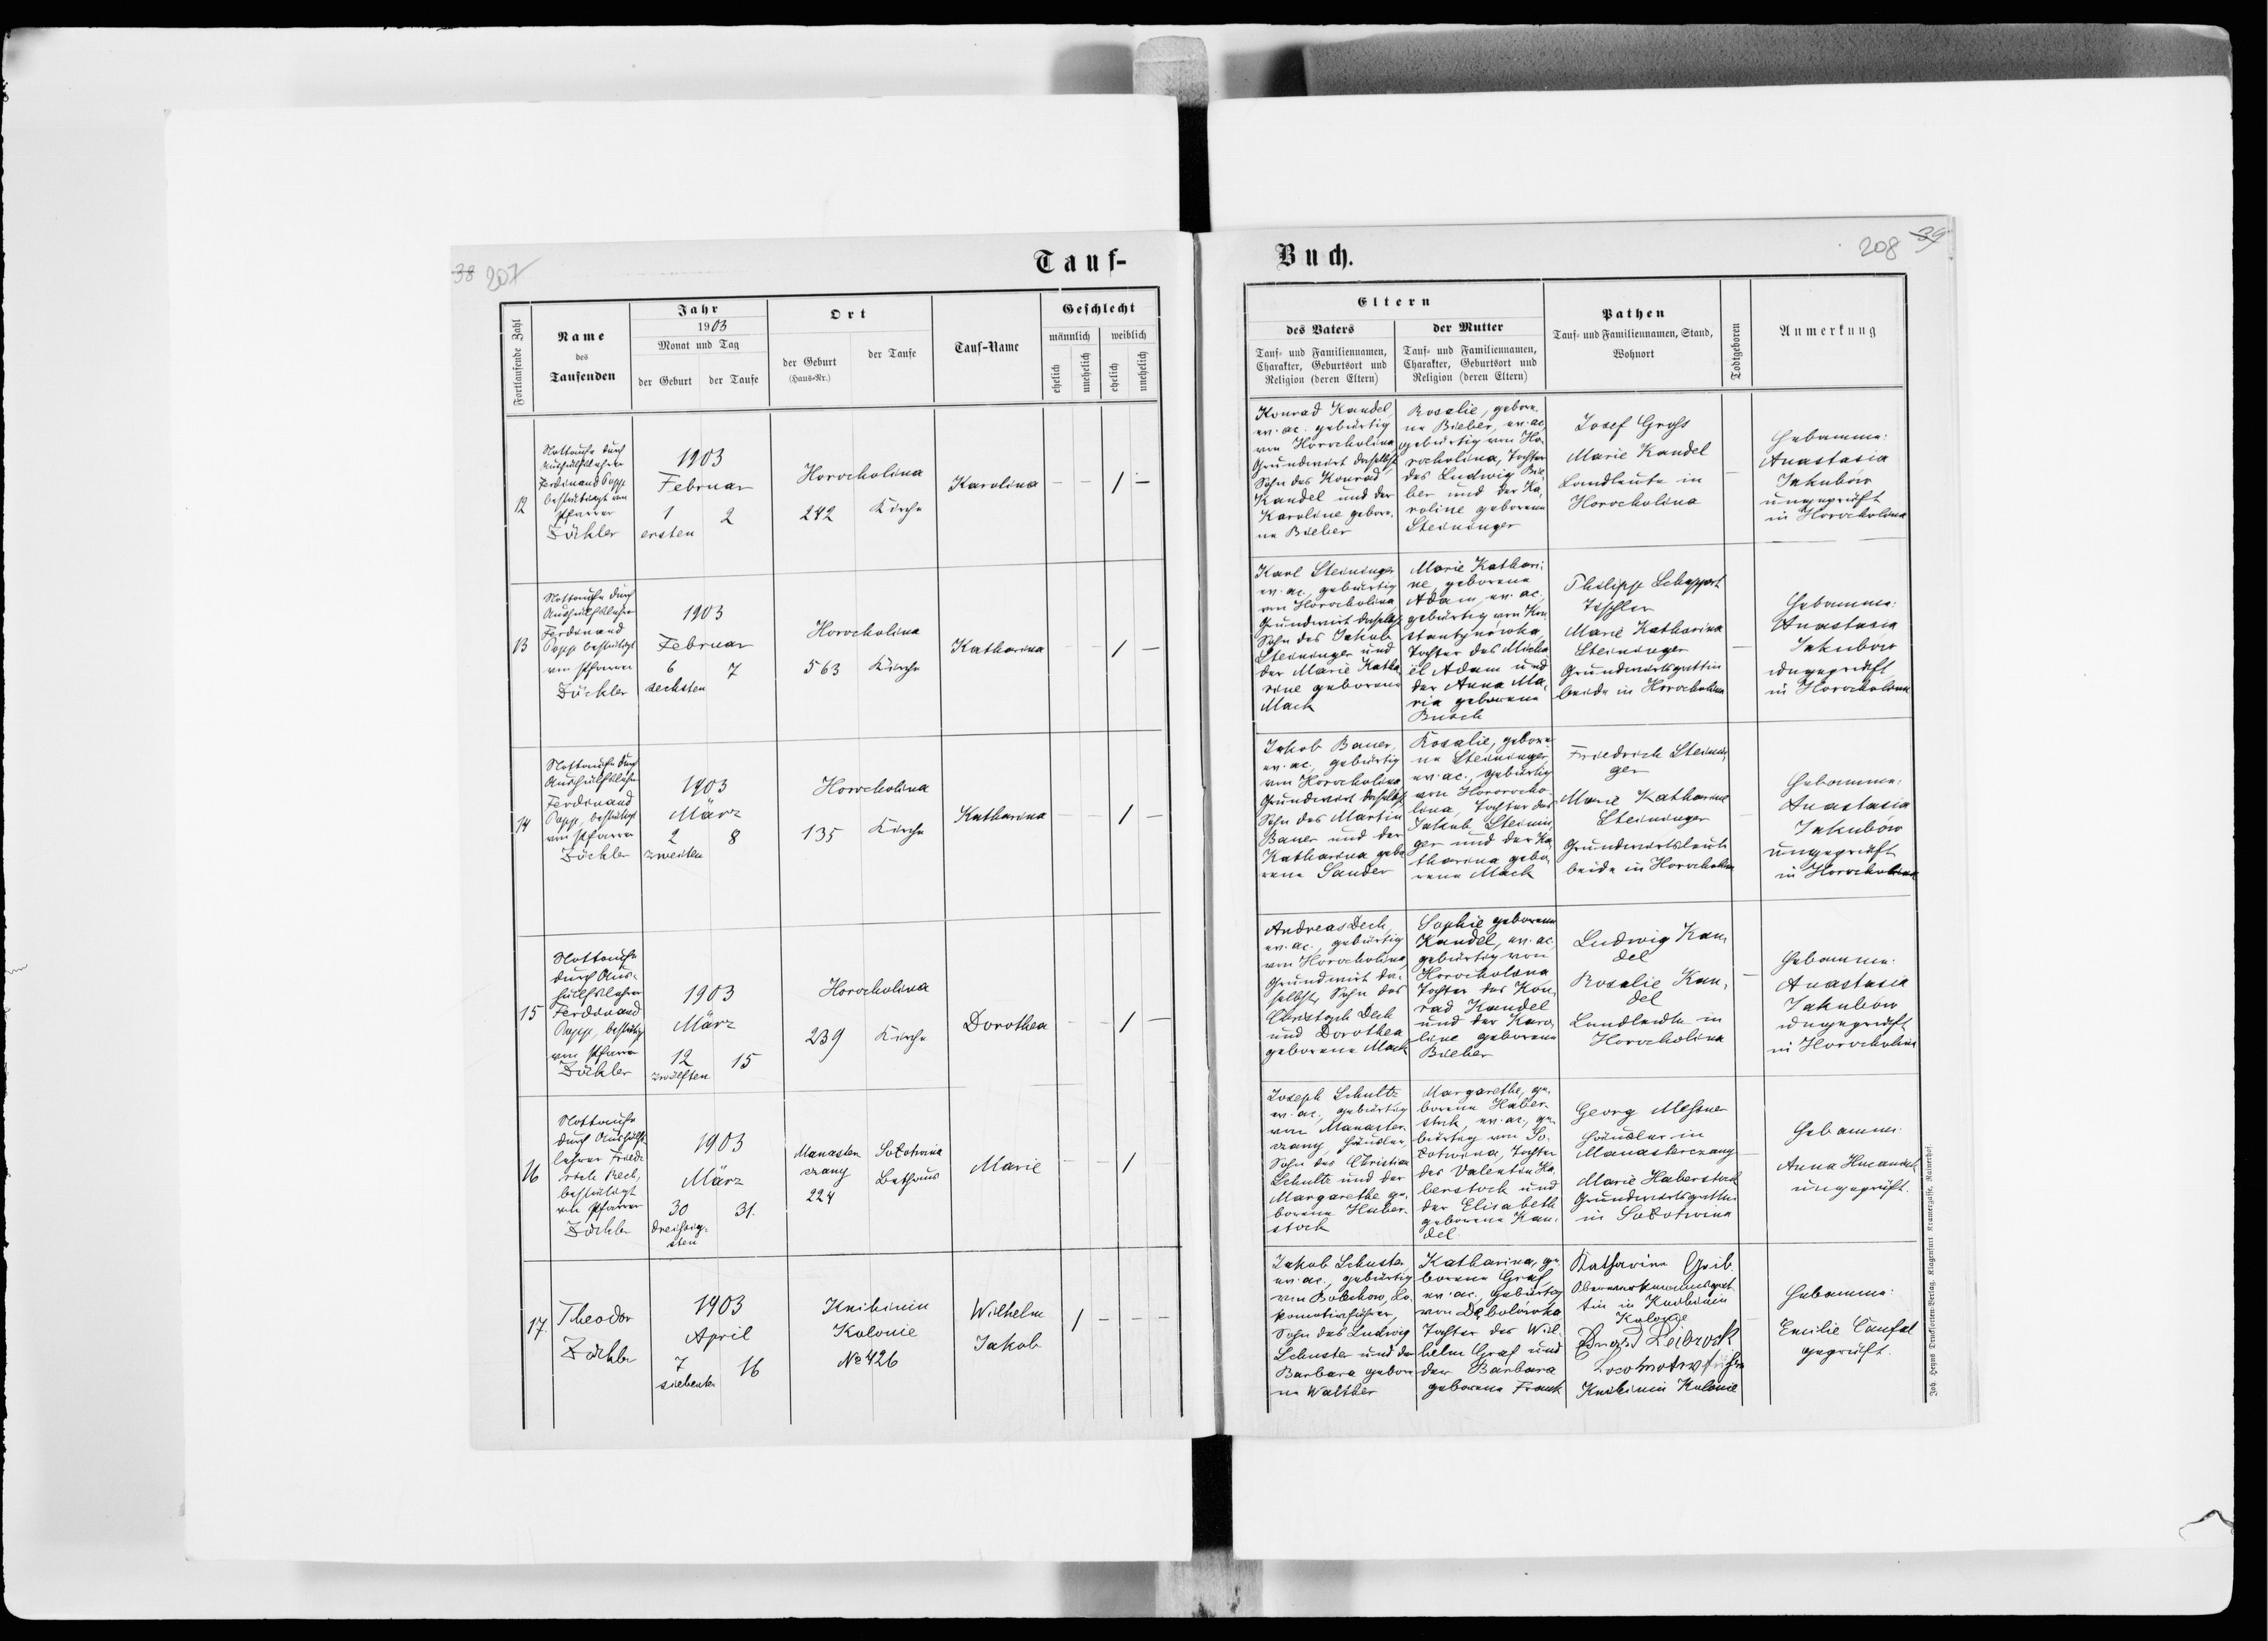 38 207
Tauf-
Fortlaufende Zahl
Name
des
Taufenden
Jahr
1903
Monat und Tag
der Geburt
der Taufe
Ort
der Geburt
(Haus-Nr.)
der Taufe
Tauf-Name
Geschlecht
männlich
weiblich
ehelich
unehelich
ehelich
unehelich
12
Nottaufe durch
Aushülfslehrer
Ferdinand Popp
bestätigt von
Pfarrer
Zöckler
1903
Februar
1
2
ersten
Horocholina
242
Kirche
Karolina
— — 1 —
13
Nottaufe durch
Aushülfslehrer
Ferdinand
Popp bestätigt
von Pfarrer
Zöckler
1903
Februar
6
7
sechsten
Horocholina
563
Kirche
Katharina
— — 1 —
14
Nottaufe durch
Aushülfslehrer
Ferdinand
Popp, bestätigt
von Pfarrer
Zöckler
1903
März
2
8
zweiten
Horocholina
135
Kirche
Katharina
— — 1 —
15
Nottaufe
durch Aus-
hülfslehrer
Ferdinand
Popp, bestätigt
von Pfarrer
Zöckler
1903
März
12
15
zwölften
Horocholina
239
Kirche
Dorothea
— — 1 —
16
Nottaufe
durch Aushülfs-
lehrer Fried-
rich Rech,
bestätigt
von Pfarrer
Zöckler
1903
März
30
31.
dreissig-
sten
Manaster-
czany
224
Sołotwina
Bethaus
Marie
— — 1
17.
Theodor
Zöckler
1903
April
7
16
siebenten
Knihinin
Kolonie
No 426
Wilhelm
Jakob
1 — — —
Buch.
208 39
Eltern
des Vaters
Tauf- und Familiennamen,
Charakter, Geburtsort und
Religion (deren Eltern)
der Mutter
Tauf- und Familiennamen,
Charakter, Geburtsort und
Religion (deren Eltern)
Pathen
Tauf- und Familiennamen, Stand,
Wohnort
Todtgeboren
Anmerkung
Konrad Kandel,
ev. ac. gebürtig
von Horocholina
Grundwirt daselbst
Sohn des Konrad
Kandel und der
Karoline gebore-
ne Bieber
Rosalie, gebore-
ne Bieber, ev. ac,
gebürtig von Ho-
rocholina, Tochter
des Ludwig Bie-
ber und der Ka-
roline geborene
Steininger
Josef Gross
Marie Kandel
Landleute in
Horocholina
—
Hebamme:
Anastasia
Jakubów
ungeprüft
in Horocholina
Karl Steininger
ev. ac, gebürtig
von Horocholina,
Grundwirt daselbst
Sohn des Jakob
Steininger und
der Marie Katha-
rine geborene
Mack
Marie Kathari-
ne, geborene
Adam, ev. ac,
gebürtig von Kon-
stantynówka,
Tochter des Micha-
el Adam und
der Anna Ma-
ria geborene
Busch
Philipp Schappert
Tischler
Marie Katharina
Steininger
Grundwirtsgattin
beide in Horocholina
—
Hebamme:
Anastasia
Jakubów
ungeprüft
in Horocholina
Jakob Bauer,
ev. ac, gebürtig
von Horocholina
Grundwirt daselbst,
Sohn des Martin
Bauer und der
Katharina gebo-
rene Sander
Rosalie, gebore-
ne Steininger
ev. ac., gebürtig
von Hororocho-
lina, Tochter des
Jakob Steinin-
ger und der Ka-
tharina gebo-
rene Mack
Friedrich Steinin-
ger
Marie Katharine
Steininger
Grundwirtsleute
beide in Horocholina
—
Hebamme:
Anastasia
Jakubów
ungeprüft
in Horocholina
Andreas Dech,
ev. ac., gebürtig
von Horocholina,
Grundwirt da-
selbst, Sohn des
Christoph Dech
und Dorothea
geborene Mack
Sophie geborene
Kandel, ev. ac,
gebürtig von
Horocholina
Tochter des Kon-
rad Kandel
und der Karo-
line geborene
Bieber
Ludwig Kan-
del
Rosalie Kan-
del
Landleute in
Horocholina
—
Hebamme:
Anastasia
Jakubów
ungeprüft
in Horocholina
Joseph Schultz
ev. ac., gebürtig
von Manaster-
czany, Häusler,
Sohn des Christian
Schultz und der
Margarethe ge-
borene Haber-
stock
Margarethe, ge-
borene Haber-
stock, ev. ac., ge-
bürtig von So-
łotwina, Tochter
des Valentin Ha-
berstock und
der Elisabeth
geborene Kan-
del
Georg Messner
Häusler in
Manasterczany
Marie Haberstock
Grundwirtsgattin
in Sołotwina
—
Hebamme:
Anna
ungeprüft.
Jakob Schuster,
ev. ac., gebürtig
von Bolechow, Lo-
komotivführer,
Sohn des Ludwig
Schuster und der
Barbara gebore-
ne Walther
Katharina, ge-
borene Graf,
ev. ac., gebürtig
von Dębolówka
Tochter des Wil-
helm Graf und
der Barbara
geborene Frank
Katharina
in Knihinin
Kolonie
Leibrock
Locomotivführer
Knihinin Kolonie
—
Hebamme:
Emilie
geprüft.
Joh. Heyns Drucksorten-Verlag. Klagenfurt Kramergasse, Rainerhof.